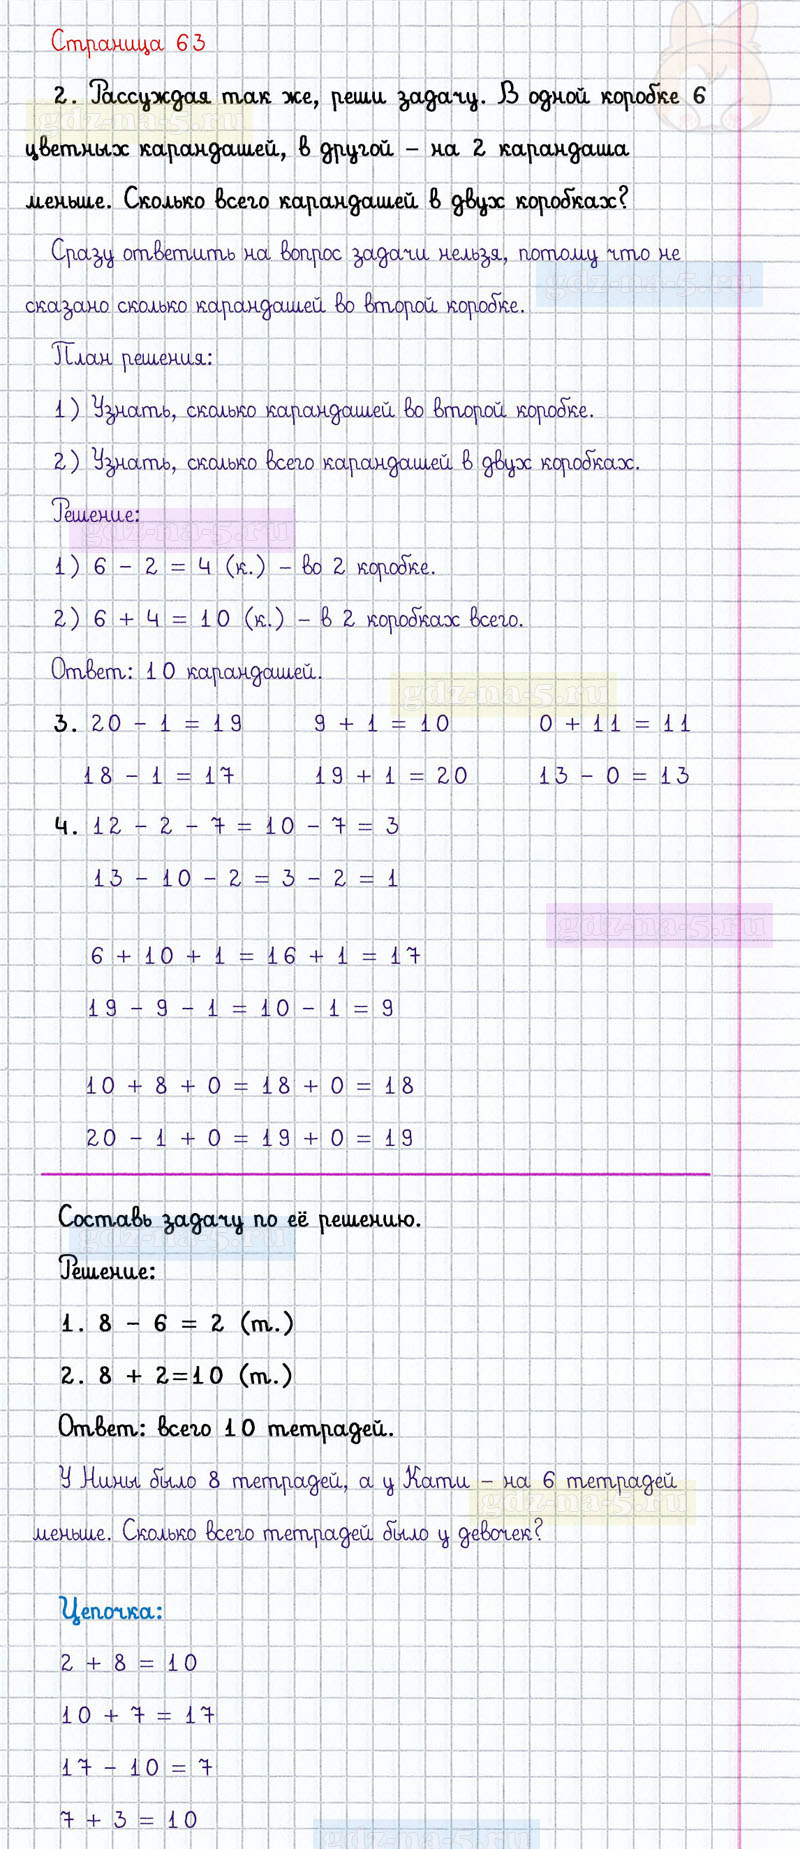 Страница 63
2. Рассуждая так же, реши задачу. В одной коробке 6
цветных карандашей, в другой – на 2 карандаша
меньше. Сколько всего карандашей в двух коробках?
Сразу ответить на вопрос задачи нельзя, потому что не
gdz-na-5.ru
сказано сколько карандашей во второй коробке.
План решения:
1) Узнать, сколько карандашей во второй коробке.
2) Узнать, сколько всего карандашей в двух коробках.
Решение:
gdz-na-5.ru
1) 6 - 2 = 4 (к.) – во 2 коробке.
2) 6 + 4 = 10 (к.) – в 2 коробках всего.
Ответ: 10 карандашей.
gdz-na-5.ru
3. 20 - 1 = 19 9 + 1 = 10 0 + 11 = 11
18 - 1 = 17 19 + 1 = 20 13 - 0 = 13
4. 12 - 2 - 7 = 10 - 7 = 3
13 - 10 - 2 = 3 - 2 = 1
gdz-na-5.ru
6 + 10 + 1 = 16 + 1 = 17
19 - 9 - 1 = 10 - 1 = 9
10 + 8 + 0 = 18 + 0 = 18
20 - 1 + 0 = 19 + 0 = 19
Составь задачу по её решению.
gdz-na-5.ru
Решение:
1. 8 - 6 = 2 (т.)
2. 8 + 2=10 (т.)
Ответ: всего 10 тетрадей.
У Нины было 8 тетрадей, а у Кати – на 6 тетрадей
gdz-na-5.ru
меньше. Сколько всего тетрадей было у девочек?
Цепочка:
2 + 8 = 10
10 + 7 = 17
17 - 10 = 7
7 + 3 = 10
gdz-na-5.ru